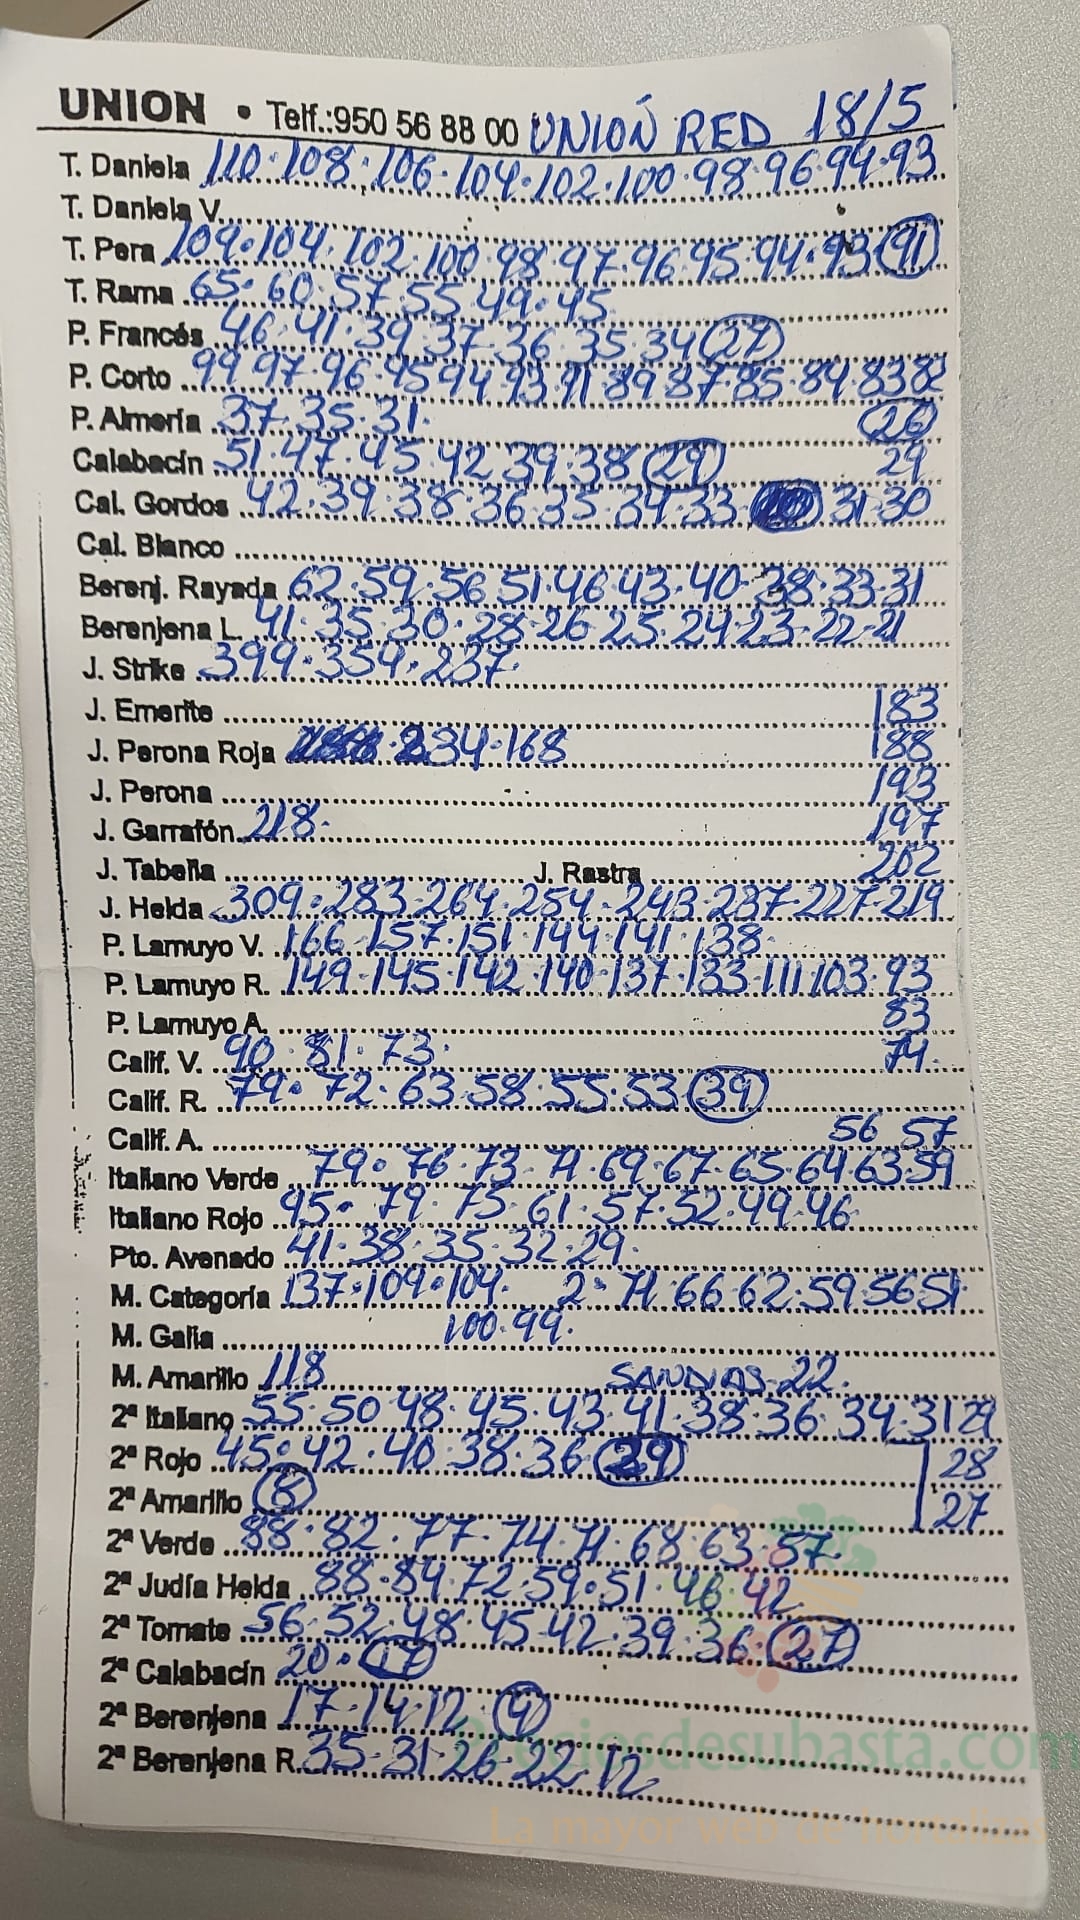 UNION • Telf.:950 56 88 00 UNIÓN RED 18/5
T. Daniela 110·108·106·104·102·100·98·96·94·93
T. Daniela V.
T. Pera 109·104·102·100·98·97·96·95·94·93 (91)
T. Rama 65·60·57·55·49·45
P. Francés 46·41·39·37·36·35·34 (27)
P. Corto 99·97·96·95·94·93·91·89·87·85·84·83·82
P. Almería 37·35·31· (26)
Calabacín 51·47·45·42·39·38 (29) 29
Cal. Gordos 42·39·38·36·35·34·33· 31·30
Cal. Blanco
Berenj. Rayada 62·59·56·51·46·43·40·38·33·31
Berenjena L. 41·35·30·28·26·25·24·23·22·21
J. Strike 399·359·237·
J. Emerite 183
J. Perona Roja 234·168 188
J. Perona 193
J. Garrafón 218· 197
J. Tabella J. Rastra 202
J. Helda 309·283·264·254·243·237·227·219
P. Lamuyo V. 166·157·151·144·141·138·
P. Lamuyo R. 149·145·142·140·137·133·111·103·93
P. Lamuyo A. 83
Calif. V. 90·81·73· 74·
Calif. R. 79·72·63·58·55·53 (39)
Calif. A. 56 57
Italiano Verde 79·76·73·71·69·67·65·64·63·59
Italiano Rojo 95·79·75·61·57·52·49·46
Pto. Avenado 41·38·35·32·29·
M. Categoría 137·109·104· 2ª 71·66·62·59·56·51·
M. Galia 100·99·
M. Amarillo 118 SANDIAS 22·
2ª Italiano 55·50·48·45·43·41·38·36·34·31·29
2ª Rojo 45·42·40·38·36 (29) 28
2ª Amarillo (8) 27
2ª Verde 88·82·77·74·71·68·63·57·
2ª Judía Helda 88·84·72·59·51·46·42
2ª Tomate 56·52·48·45·42·39·36·(27)
2ª Calabacín 20·(17)
2ª Berenjena 17·14·12 (9)
2ª Berenjena R. 35·31·26·22·12
Preciosdesubasta.com
La mayor web de hortalizas